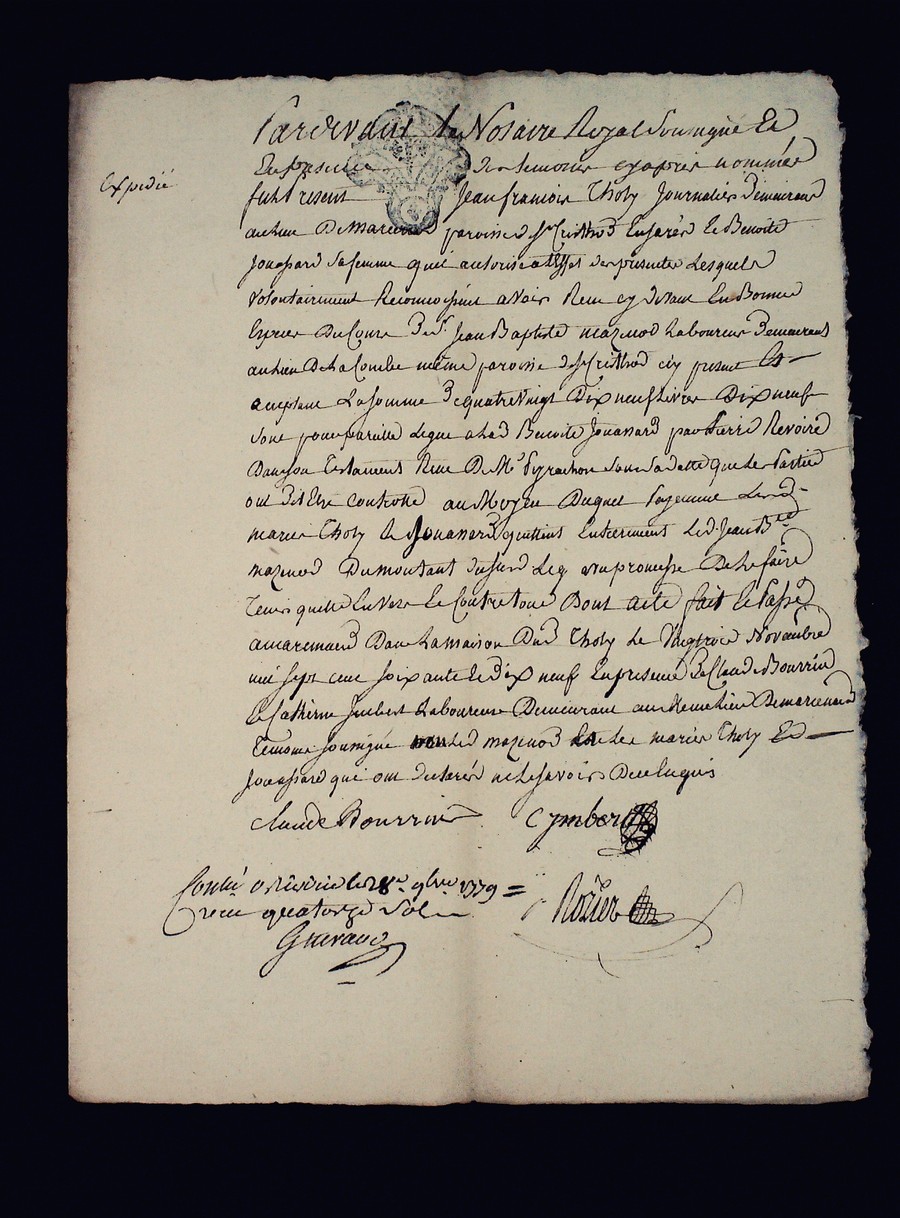 Pardevant le Notaire Royal Soussigné Et
En presence des temoins cy apres nommés
fut present Jean francois Tholy Journalier demeurant
au lieu De Marcenod paroisse de St Cristhod Ensarés Et Benoite
Jouassard sa femme qu'il autorise a l'effet des presentes Lesquels
Volontairement Reconnoissent avoir Recu cy devant En Bonnes
Especes Du Cours De Sr Jean Baptiste mazenod Laboureur Demeurant
au lieu De La Combe même paroisse de St Cristhod icy present Et
acceptant La somme De quatre Vingt Dix neuf Livres Dix neuf
sols pour pareille Leguée a Lad Benoite Jouassard par Pierre Revoire
Dans son Testament Recu De Me Peyrachon Sous sa datte que les Parties
ont dit Etre Controllé au Moyen Duquel payement Lesd
mariés Tholy Et Jouassard quittent Entierement Led. Jean Bte
mazenod Du montant dususd Legs avec promesse De Le faire
Tenir quitte Envers Et Contre tous Dont acte fait Et Passé
a marcenod Dans La maison Dud Tholy Le Vingt trois Novembre
mil sept cent soixante Et Dix neuf En presence De Claude Bourrin
Et Catherin Imbert Laboureurs Demeurant au Même lieu De marcenod
Temoins soussignés non Led mazenod Et Les mariés Tholy Et
Jouassard qui ont declarés ne Le savoir De ce Enquis
Claude Bourrin Cymbert
Conlé a le 28e 9bre 1779
recu quatorze sols
Rozier
Expedié